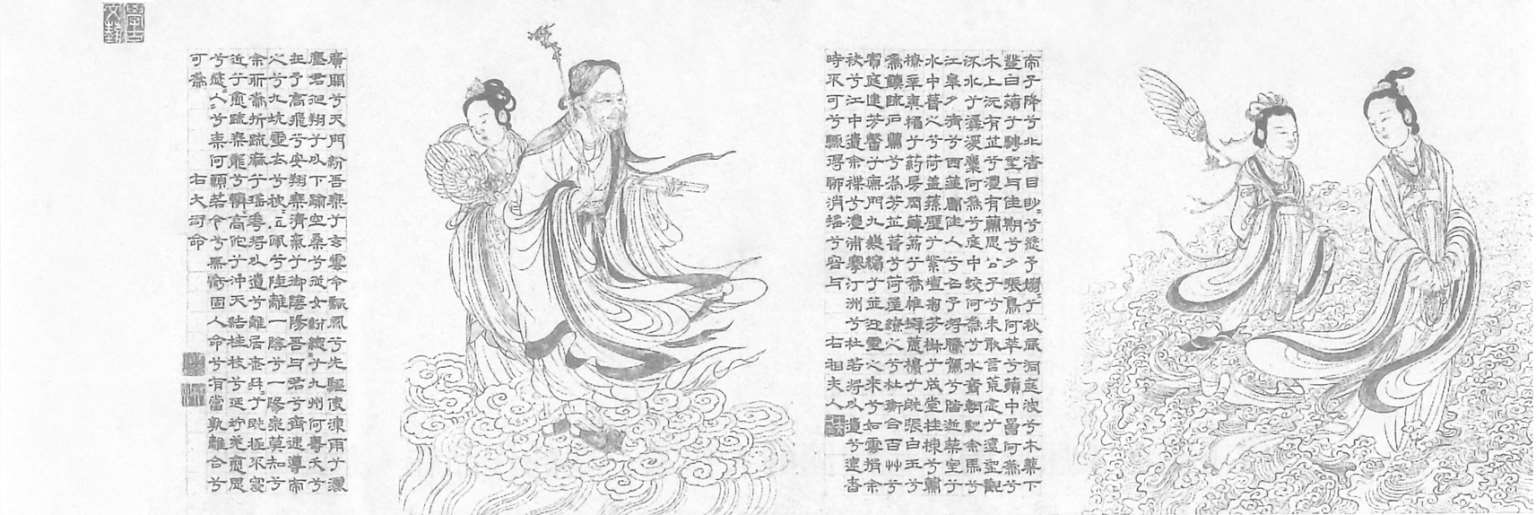 帝子降兮北渚目眇〻兮愁予嫋〻兮秋風洞庭波兮木葉下
登白薠兮騁望與佳期兮夕張鳥何萃兮蘋中罾何為兮
木上沅有芷兮澧有蘭思公子兮未敢言荒忽兮遠望觀
流水兮潺湲麋何為兮庭中蛟何為兮水裔朝馳余馬兮
江皋夕濟兮西澨聞佳人兮召予將騰駕兮偕逝築室兮
水中葺之兮荷蓋蓀壁兮紫壇匊芳椒兮成堂桂棟兮蘭
橑辛夷楣兮葯房罔薜荔兮為帷擗蕙櫋兮既張白玉兮
為鎮疏石蘭兮為芳芷葺兮荷屋繚之兮杜衡合百艸兮
實庭建芳馨兮廡門九嶷繽兮並迎靈之來兮如雲捐余
袂兮江中遺余褋兮澧浦搴汀洲兮杜若將以遺兮遠者
時不可兮驟得聊消搖兮容與 右湘夫人
廣開兮天門紛吾乘兮玄雲令飄風兮先驅使涷雨兮灑
塵君迴翔兮以下踰空桑兮從女紛總〻兮九州何壽夭兮
在予高飛兮安翔乘清氣兮御陰陽吾與君兮齊速導帝
之兮九坑靈衣兮被〻玉佩兮陸離一陰兮一陽衆莫知兮
余所為折疏麻兮瑤華將以遺兮離居老冉〻兮既極不寖
近兮愈疏乘龍兮轔〻高馳兮沖天結桂枝兮延竚羌愈思
兮愁〻人〻兮柰何願若今兮無虧固人命兮有當孰離合兮
可為 右大司命